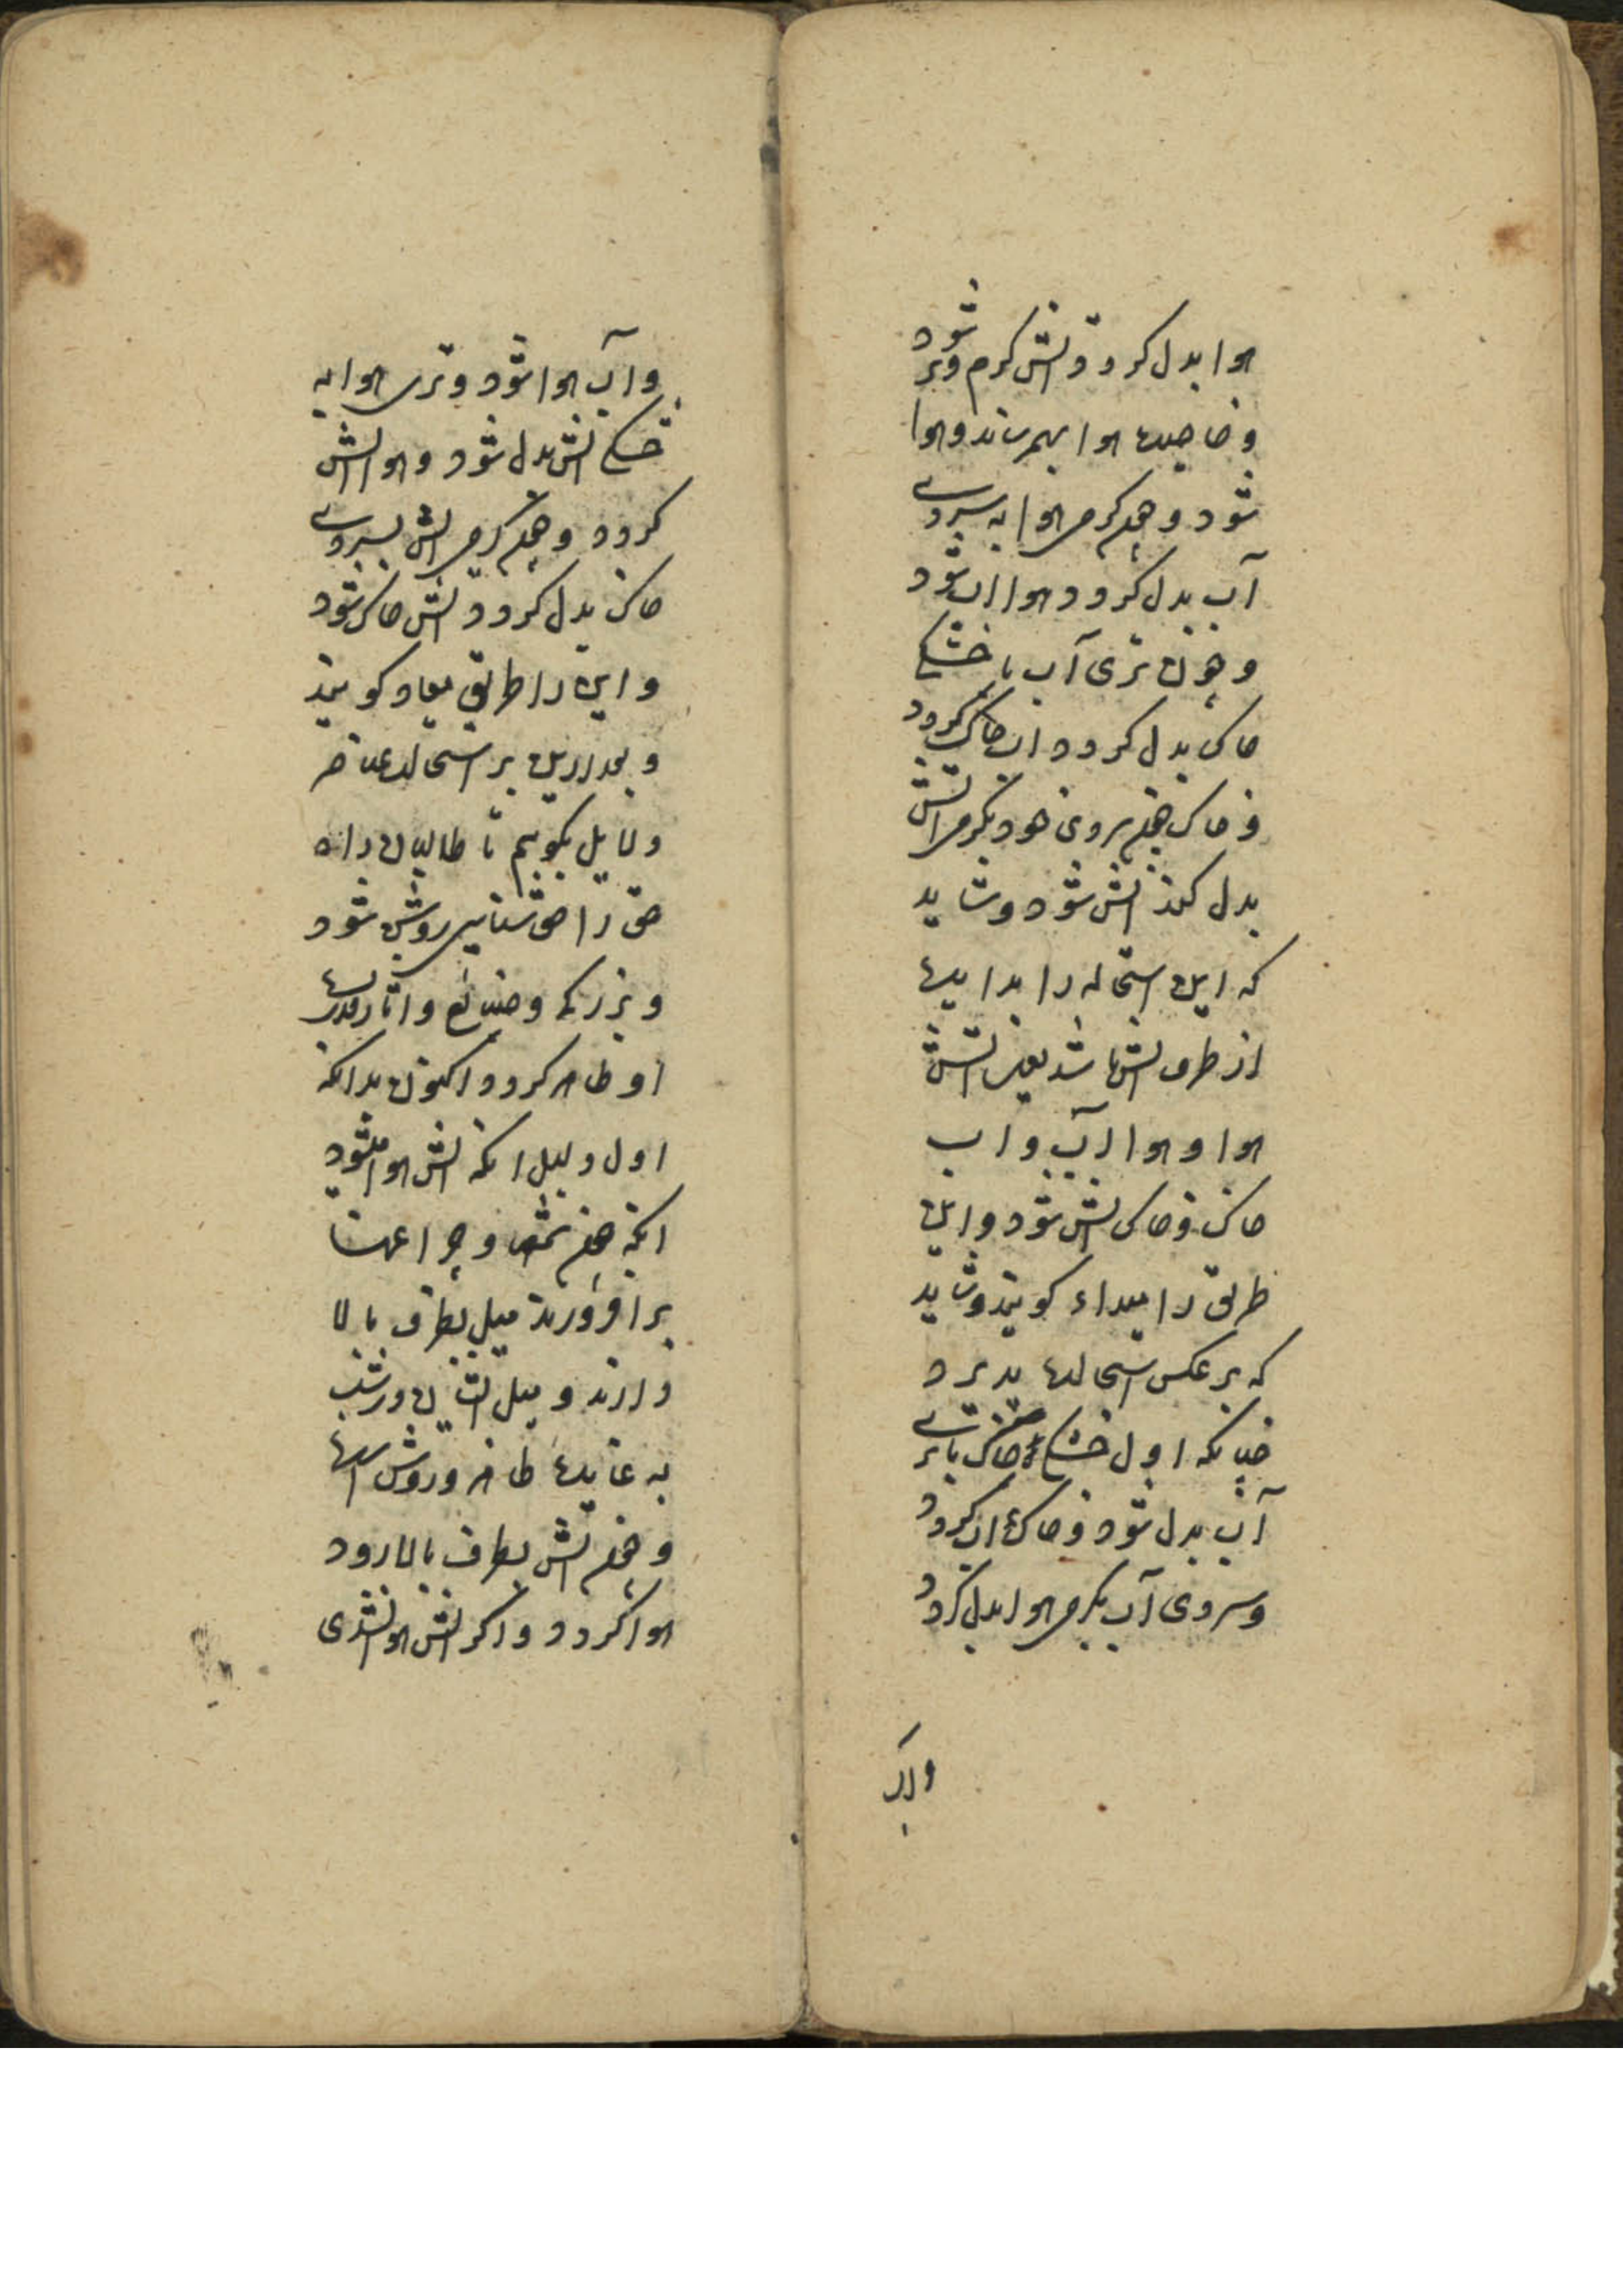 هوا بدل کردد و اتش کرم و تر شود
و خاصیت هوا بهم رساند و هوا
شود و چون کرمی هوا به سردی
آب بدل کردد هوا اب شود
و چون تری آب با خشکی
خاک بدل کردد اب خاک کردد
و خاک چون سردی خود بکرمی اتش
بدل کند اتش شود و شاید
که این استحاله را بدایت
از طرف اتش باشد یعنی اتش
هوا و هوا آب و اب
خاک و خاک اتش شود و این
طریق را مبداء کویند و شاید
که برعکس استحالت پذیرد
چنانکه اول خشکی خاک با تری
آب بدل شود و خاک اب کردد
و سردی آب بکرمی هوا بدل کردد
و آب هوا شود و تری هوا به
خشکی اتش بدل شود و هوا اتش
کردد و چون کرمی اتش بسردی
خاک بدل کردد اتش خاک شود
و این را طریق معاد کویند
و بعد ازین بر استحالت عناصر
دلایل بکویم تا طالبان راه
حق را حق شناسی روشن شود
و بزرکی و صنایع و اثار قدرت
او ظاهر کردد اکنون بدانکه
اول دلیل انکه اتش هوا میشود
انکه چون شمعها و چراغها
برافروزند میل بطرف بالا
دارند و میل اتشان در شب
به غایت ظاهر و روشن است
و چون اتش بطرف بالا رود
هوا کردد و اکر اتش هوا نشدی